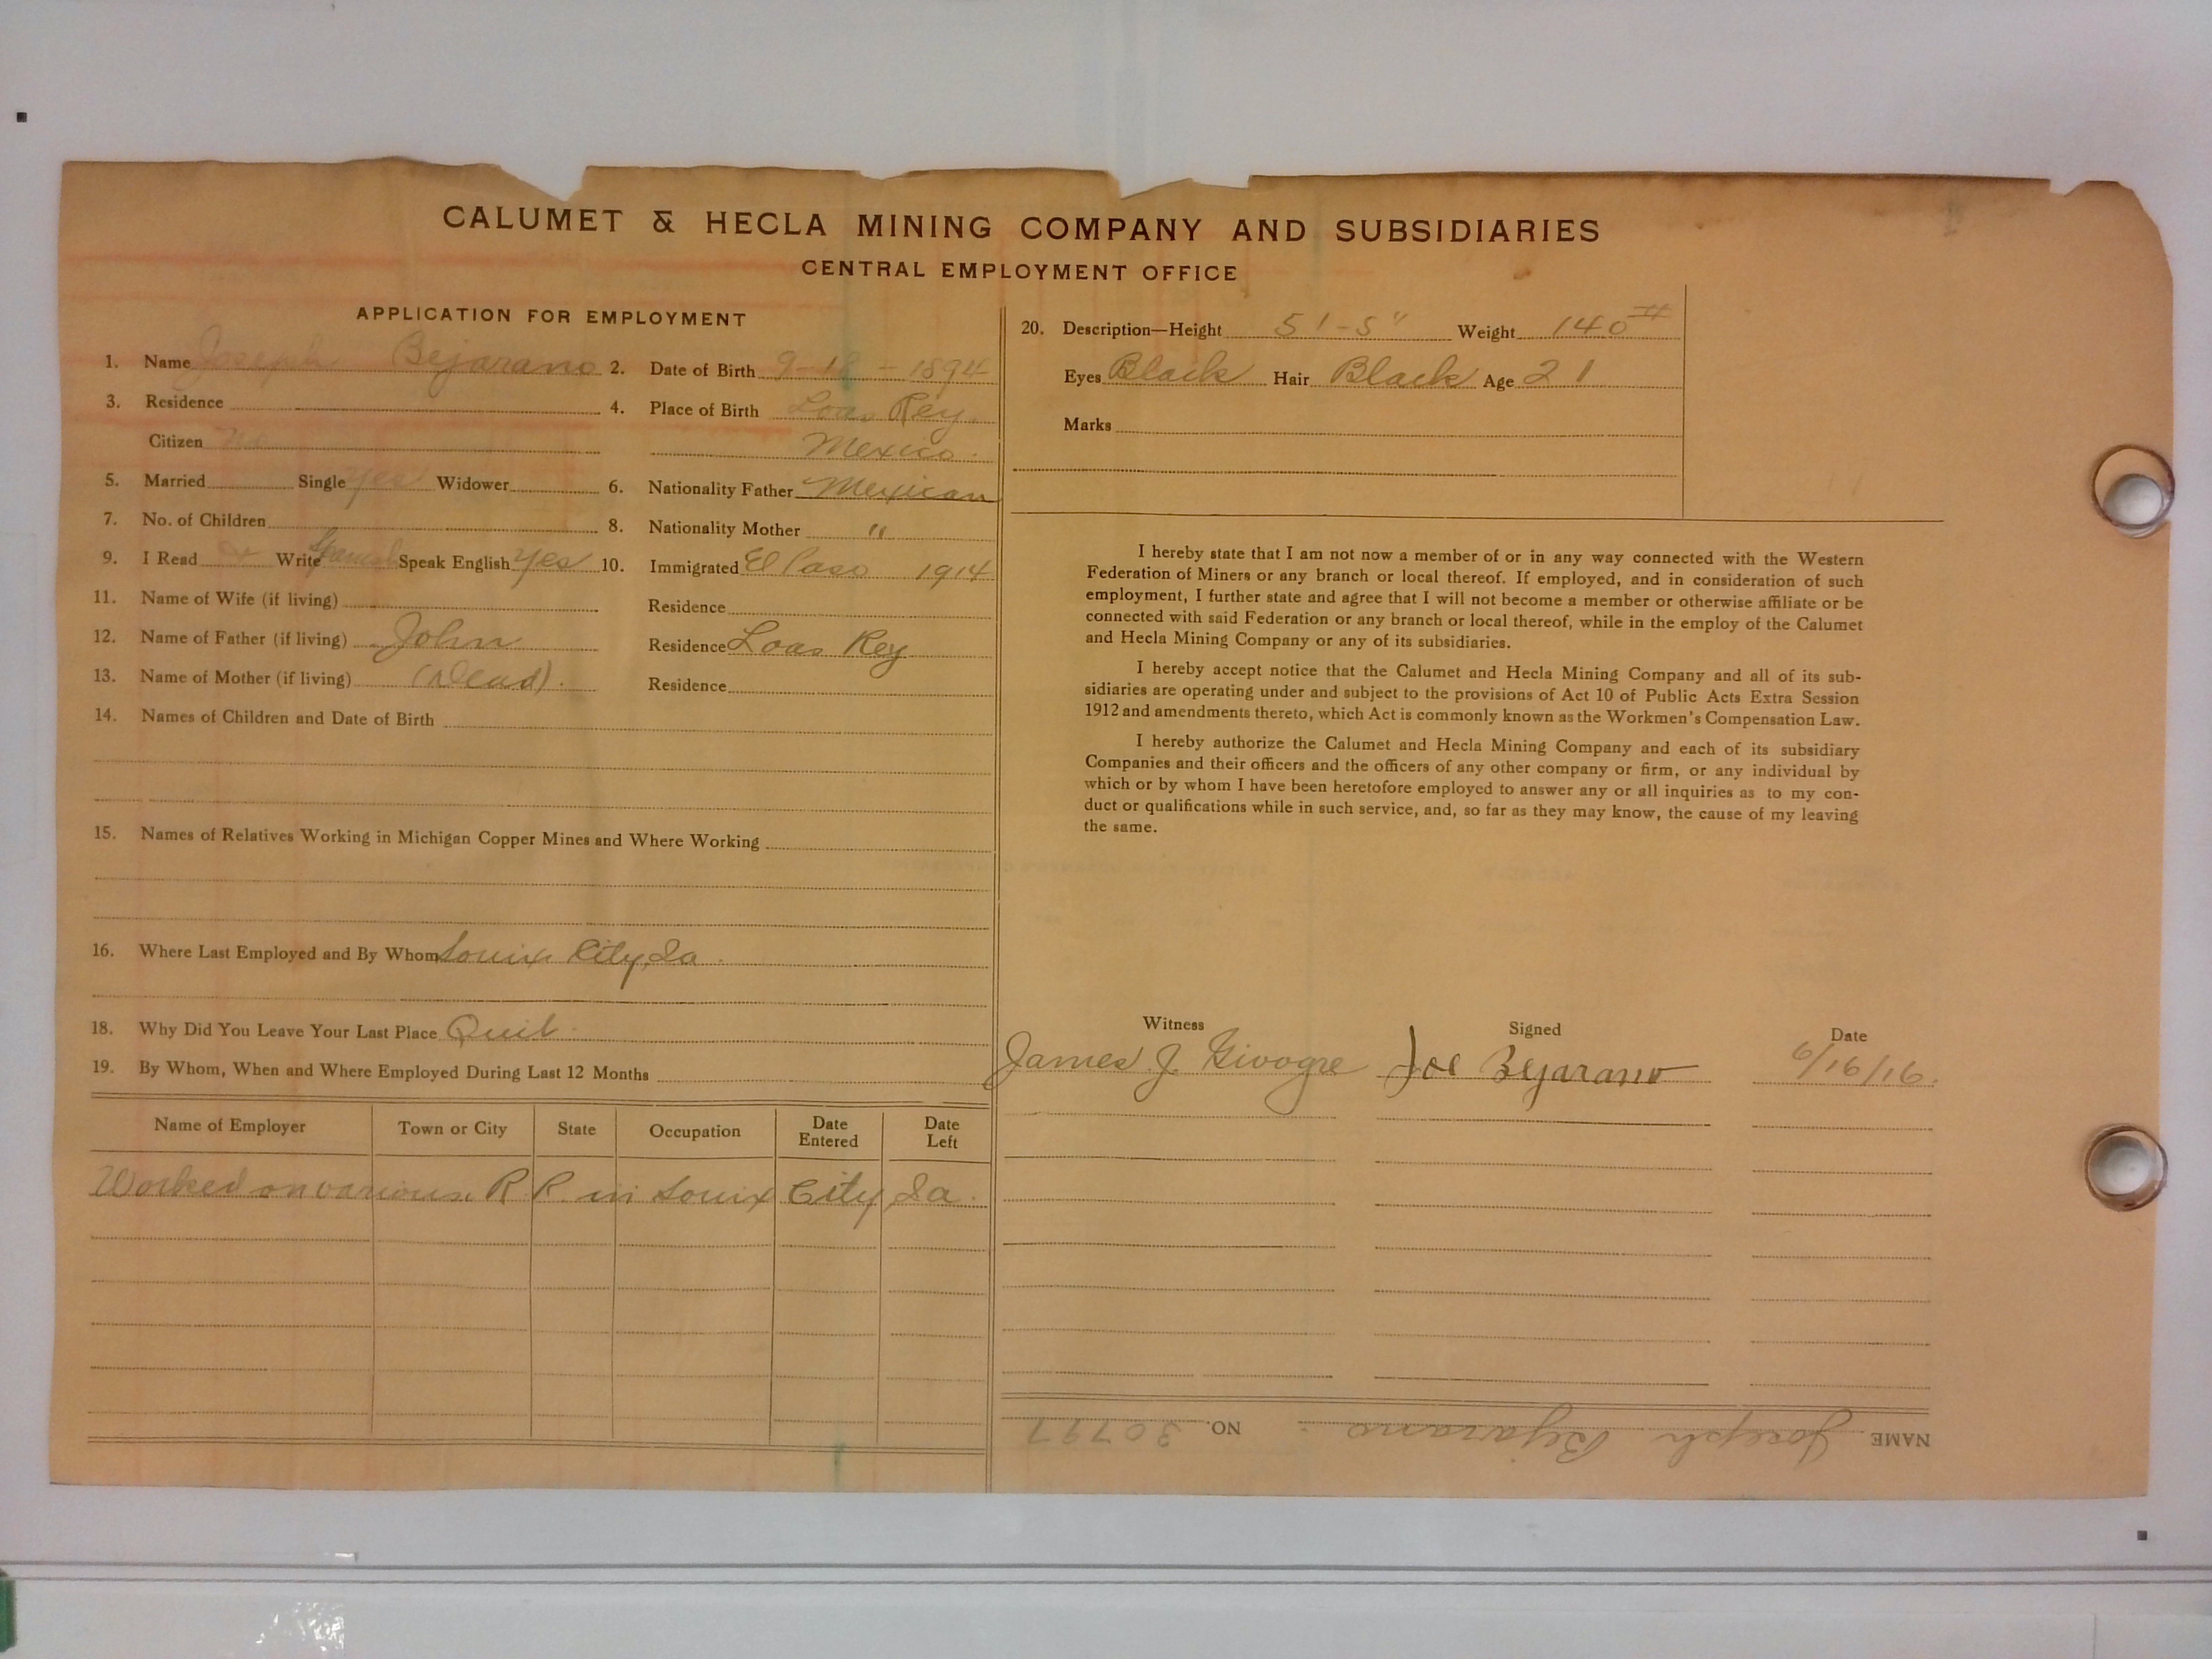 CALUMET & HECLA MINING COMPANY AND SUBSIDIARIES
CENTRAL EMPLOYMENT OFFICE
APPLICATION FOR EMPLOYMENT
1. Name Joseph Bejarano 2. Date of Birth 9-18-1894
3. Residence 4. Place of Birth Loas Rey.
Citizen No Mexico.
5. Married Single yes Widower 6. Nationality Father Mexican
7. No. of Children 8. Nationality Mother "
9. I Read Write Spanish Speak English yes 10. Immigrated El Paso 1914
11. Name of Wife (if living) Residence
12. Name of Father (if living) John Residence Loas Rey
13. Name of Mother (if living) (Dead). Residence
14. Names of Children and Date of Birth
15. Names of Relatives Working in Michigan Copper Mines and Where Working
16. Where Last Employed and By Whom Souix City, Ia.
18. Why Did You Leave Your Last Place Quit.
19. By Whom, When and Where Employed During Last 12 Months
Name of Employer Town or City State Occupation Date Entered Date Left
Worked on various R R. in Souix City Ia.
20. Description—Height 5'-5" Weight 140#
Eyes Black Hair Black Age 21
Marks
I hereby state that I am not now a member of or in any way connected with the Western
Federation of Miners or any branch or local thereof. If employed, and in consideration of such
employment, I further state and agree that I will not become a member or otherwise affiliate or be
connected with said Federation or any branch or local thereof, while in the employ of the Calumet
and Hecla Mining Company or any of its subsidiaries.
I hereby accept notice that the Calumet and Hecla Mining Company and all of its sub-
sidiaries are operating under and subject to the provisions of Act 10 of Public Acts Extra Session
1912 and amendments thereto, which Act is commonly known as the Workmen's Compensation Law.
I hereby authorize the Calumet and Hecla Mining Company and each of its subsidiary
Companies and their officers and the officers of any other company or firm, or any individual by
which or by whom I have been heretofore employed to answer any or all inquiries as to my con-
duct or qualifications while in such service, and, so far as they may know, the cause of my leaving
the same.
Witness Signed Date
James J. Givogre Joe Bejarano 6/16/16.
NAME Joseph Bejarano. NO. 30797